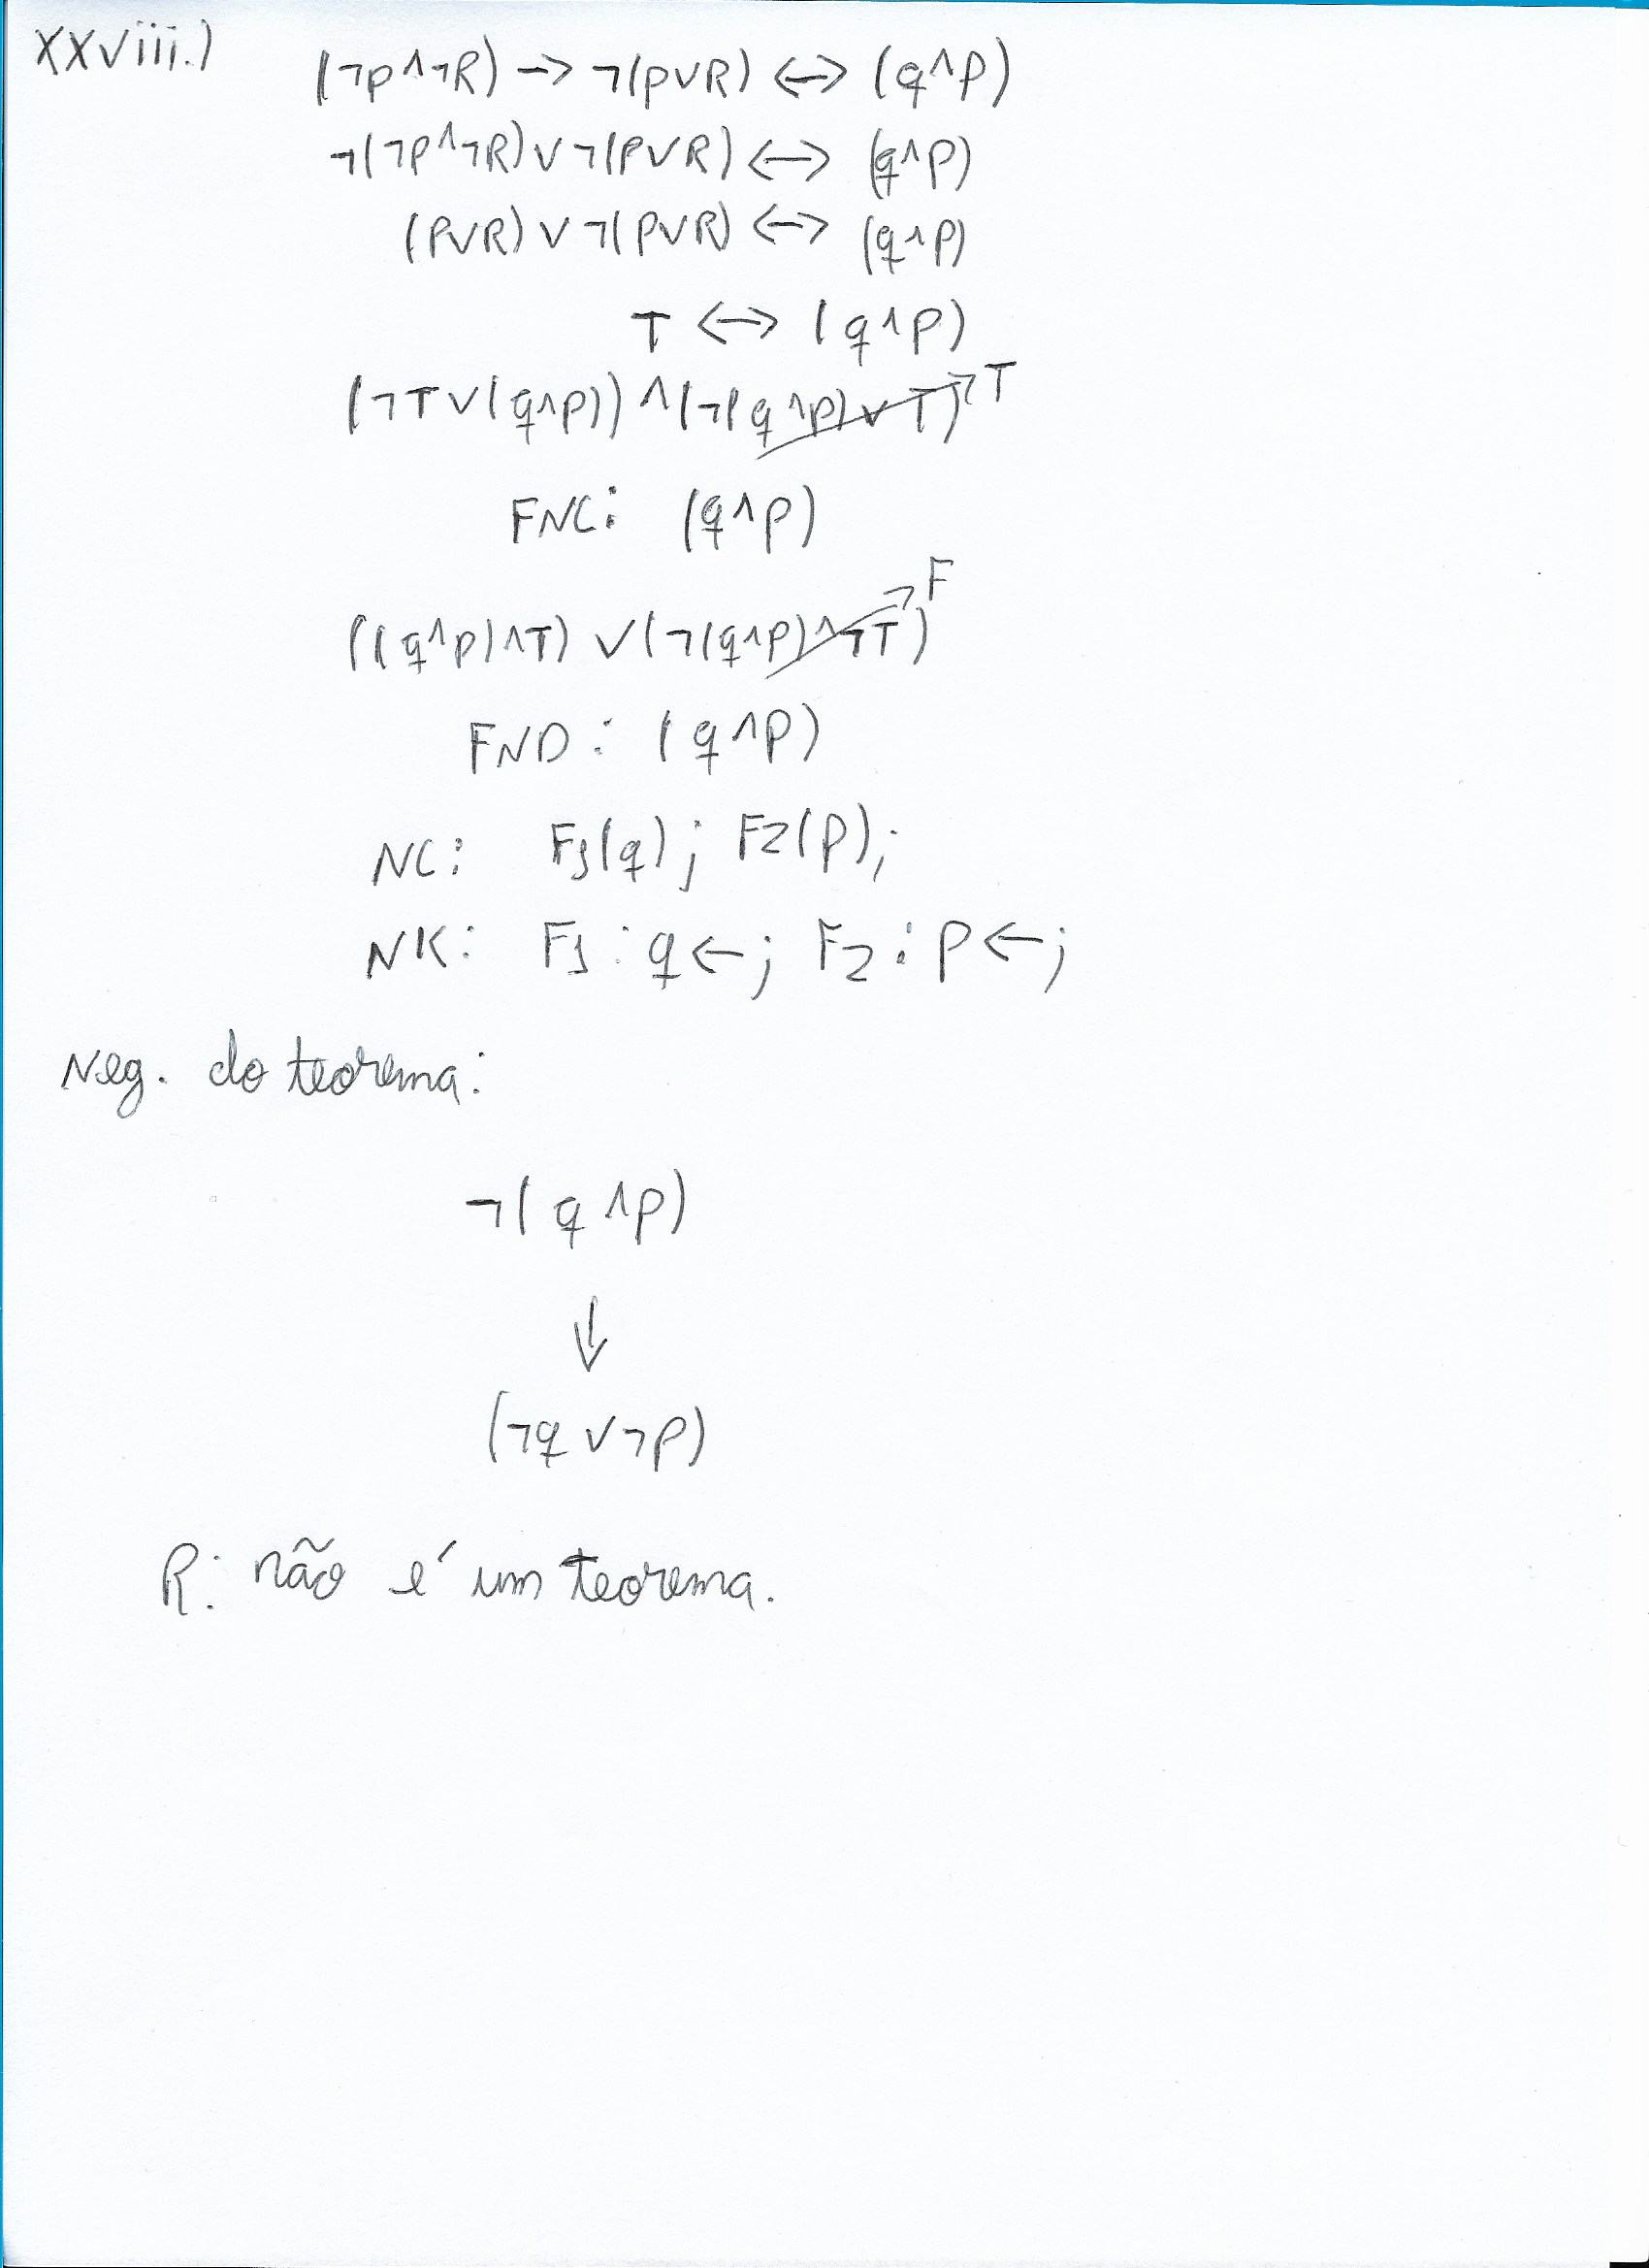 xxviii.) (¬p^¬R) -> ¬(pvR) <-> (q^p)
¬(¬p^¬R) v ¬(pvR) <-> (q^p)
(pvR) v ¬(pvR) <-> (q^p)
T <-> (q^p)
(¬T v (q^p)) ^ (¬(q^p) v T) → T
FNC: (q^p)
((q^p)^T) v (¬(q^p)^¬T) → F
FND: (q^p)
NC: F1(q); F2(p);
NK: F1: q←; F2: p←;
Neg. do teorema:
¬(q^p)
↓
(¬q v ¬p)
R: não é um teorema.